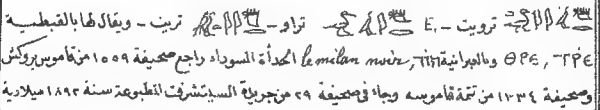 تروريت - E, تراو - تريت - ويقال لها بالقبطية
ⲐⲢⲈ, ⲦⲢⲈ وبالعبرانية le milan noir, الحدأة السوداء راجع صحيفة ١٥٥٩ من قاموس بروكش
وصحيفة ١١٣٤ من تتمة قاموسه وجاء في صحيفة ٢٩ من جريدة السيتشرفت المطبوعة سنة ١٨٩٢ ميلادية